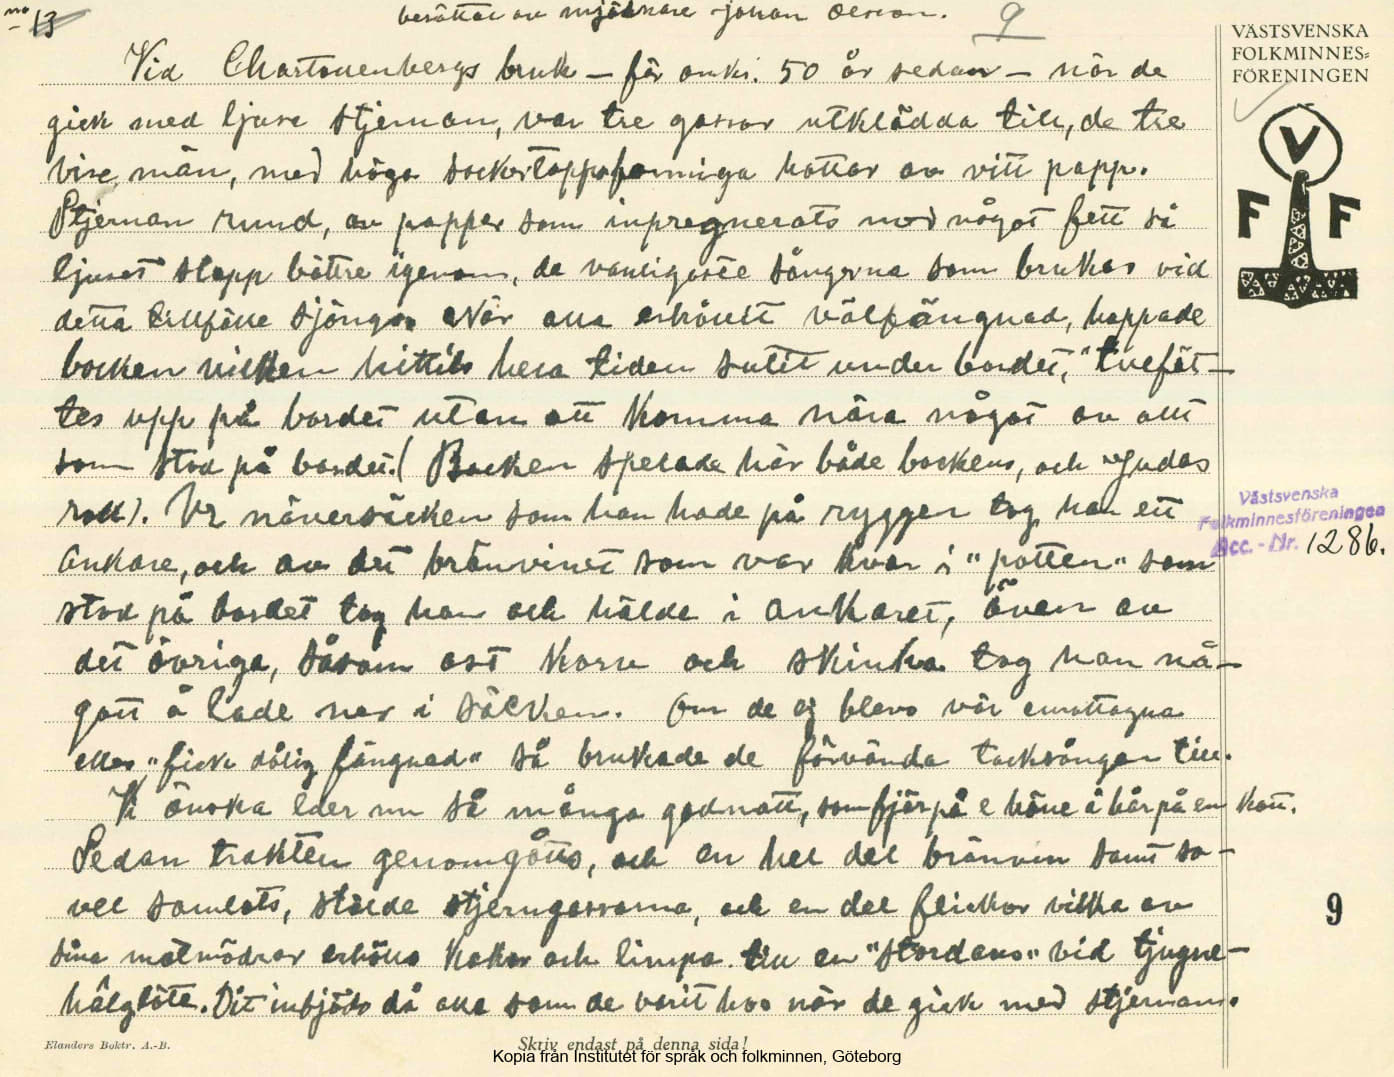 no 13
berättat av mjölnare Johan Olsson.
9
VÄSTSVENSKA
FOLKMINNES=
FÖRENINGEN
V
F F
Vid Chartouenbergs bruk – för omkr. 50 år sedan – när de
gick med ljusa stjernan, var tre gossar utklädda till, de tre
vise män, med höga sockertoppsformiga hattar av vitt papp.
Stjernan rund, av papper som inpregnerats med något fett så
ljuset slapp bättre igenom, de vanligaste sångerna som brukas vid
detta tillfälle sjöngos När alla erhållit välfängnad, hoppade
bocken vilken hittils hela tiden sutit under bordet, "tvefät-
tes upp på bordet utan att komma nära något av allt
som stod på bordet. (Bocken spelade här både bockens, och Judas
roll). Ur näversäcken som han hade på ryggen tog han ett
ankare, och av det brännvinet som var kvar i "potten" som
stod på bordet tog han och hälde i ankaret, även av
det övriga, såsom ost korv och skinka tog han nå-
gott å lade ner i säcken. Om de ej blevo väl emottagna
eller "fick dålig fängnad" så brukade de förvända tacksången till.
Vi önska Eder nu så många godnatt, som fjär på e höne å hår på en katt.
Sedan trakten genomgåtts, och en hel del brännvin samt so-
vel samlats, stälde stjerngossarna, och en del flickor vilka av
sina matmödrar erhöllo kakor och limpa till en "stordans" vid tjugne-
hälgtöta. Dit inbjöds då alla som de varit hos när de gick med stjernan.
Västsvenska
Folkminnesföreningen
Acc.-Nr. 1286.
9
Elanders Boktr. A.-B.
Skriv endast på denna sida!
Kopia från Institutet för språk och folkminnen, Göteborg